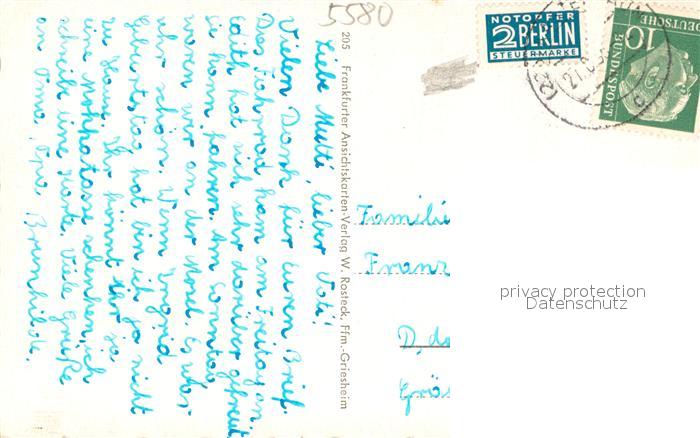 5580
NOTOPFER
2 BERLIN
STEUERMARKE
DEUTSCHE
10
BUNDESPOST
Liebe Mutti, lieber Vati!
Vielen Dank für euren Brief.
Das Fahrrad kam am Freitag an
Edith hat sich sehr darüber gefreut
Sie kann fahren. Am Sonntag
waren wir an der Mosel. Es war
sehr schön. Wenn Ingrid
Geburtstag hat bin ich ja nicht
zu Haus. Ihr könnt ihr ja
eine Mokkatasse schenken, ich
schreib eine Karte. Viele Grüße
an Oma, Opa. Brunhilde.
205 Frankfurter Ansichtskarten-Verlag W. Rosteck, Ffm.-Griesheim
Familie
Franz
privacy protection
Datenschutz